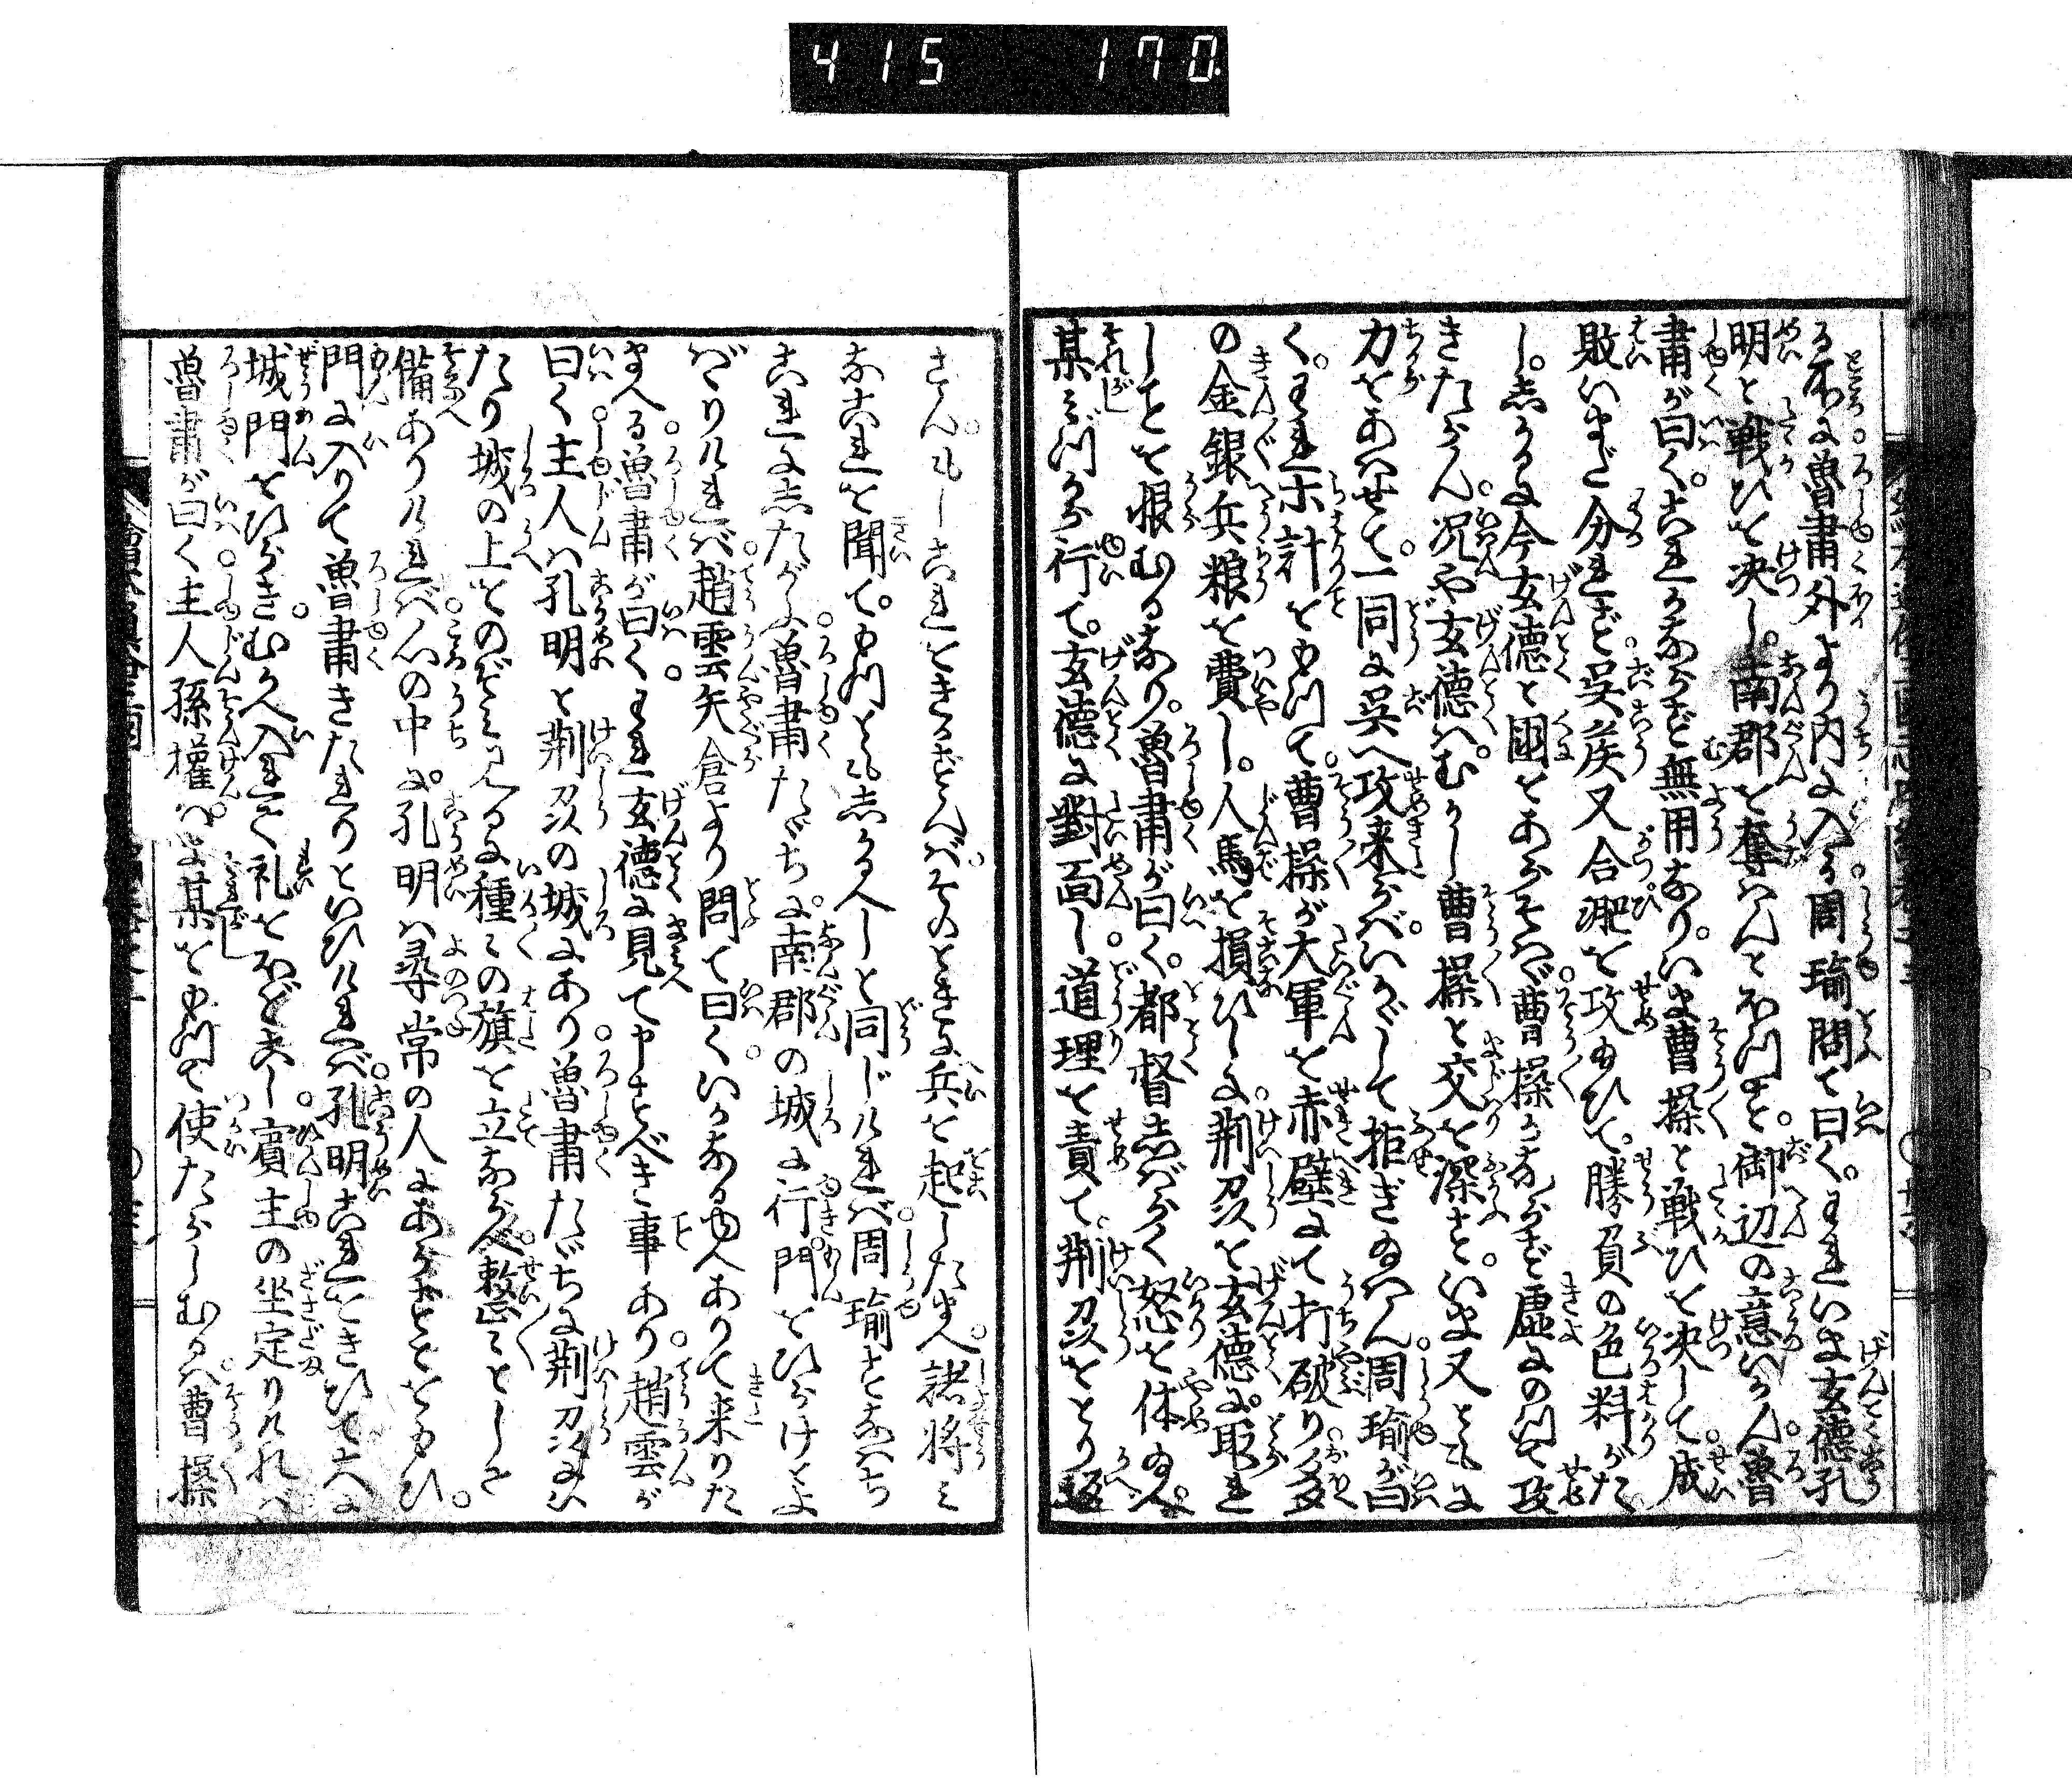 415 170
る所に魯肅外より内に入る周瑜問て曰く。われいま玄徳孔
明と戦ひを决し。南郡を奪はんとおもつす。御辺の意いかん魯
肅が曰く。これかならず無用なり。いま曹操と戦ひを决して。成
敗いまだ分れず。呉侯又合淝を攻玉ひて。勝負の色料がた
し。しかるに今玄徳と国をあらそはゞ曹操かならず虚にのつて攻
きたらん。况や玄徳は。むかし曹操と交を深うす。いま又ともに
力をあはせて。一同に呉へ攻来らば。いかゞして拒ぎ玉はん。周瑜が曰
く。われ計をもつて。曹操が大軍を赤壁にて打破り。多
の金銀兵粮を費し。人馬を損ひしに。荆州を玄徳に取れ
しことを恨むるなり。魯肅が曰く。都督しばらく怒を休玉へ。
某みづから行て。玄徳に對面し。道理を責て。荆州をとり返
さん。もしこれをきかずんば。そのときに兵を起した玉へ。諸将み
なこれを聞て。もつともしかるべしと同じければ。周瑜すなはち
これにしたがふ。魯肅たゞちに。南郡の城に行。門をひらけよ
ばゝりければ。趙雲矢倉より問て曰く。いかなる人ありて来りた
まへる。魯肅が曰く。われ玄徳に見て申すべき事あり。趙雲が
曰く。主人は孔明と荆州の城にあり。魯肅たゞちに荆州にい
たり城の上をのぞみ見るに種々の旗を立ならべ。整々としさ
備ありければ。心の中に。孔明は尋常の人にあらずとおもひ。
門に入りて魯肅きたれりといひければ。孔明これをきひて大に
城門をひらき。むかへ入れて礼をほどこし。賓主の坐定りければ
魯肅が曰く。主人孫權。いま某をもつて使たらしむるは。曹操